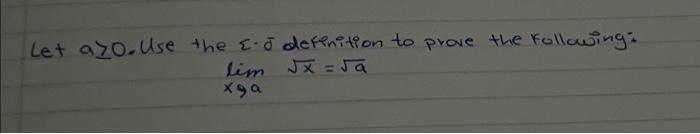 Let a≥0. Use the ε-δ definition to prove the following:
lim √x = √a
x→a